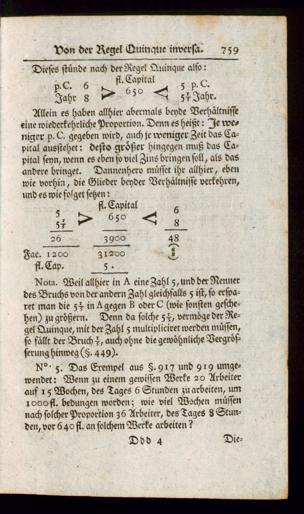 Von der Regel Quinque inversa. 759
Dieses stünde nach der Regel Quinque also:
fl. Capital
p.C. 6 > 650 < 5 p.C.
Jahr 8 5⅕ Jahr.
Allein es haben allhier abermals beyde Verhältnisse
eine wiederkehrliche Proportion. Denn es heißt: Je we-
niger p. C. gegeben wird, auch je weniger Zeit das Ca-
pital ausstehet: desto größer hingegen muß das Ca-
pital seyn, wenn es eben so viel Zins bringen soll, als das
andere bringet. Dannenhero müsset ihr allhier, eben
wie vorhin, die Glieder beyder Verhältnisse verkehren,
und es wie folget setzen:
fl. Capital
5 > 650 < 6
5⅕ 8
26 3900 48
Fac. 1200 31200
fl. Cap. 5 .
Nota. Weil allhier in A eine Zahl 5, und der Nenner
des Bruchs von der andern Zahl gleichfalls 5 ist, so erspa-
ret man die 5⅕ in A gegen B oder C (wie sonsten gesche-
hen) zu größern. Denn da solche 5⅕, vermöge der Re-
gel Quinque, mit der Zahl 5 multipliciret werden müssen,
so fällt der Bruch ⅕, auch ohne die gewöhnliche Vergrös-
serung hinweg (§. 449).
N°. 5. Das Exempel aus §. 917 und 919 umge-
wendet: Wenn zu einem gewissen Werke 20 Arbeiter
auf 15 Wochen, des Tages 6 Stunden zu arbeiten, um
1000 fl. bedungen worden; wie viel Wochen müssen
nach solcher Proportion 36 Arbeiter, des Tages 8 Stun-
den, vor 640 fl. an solchem Werke arbeiten?
Ddd 4 Die-